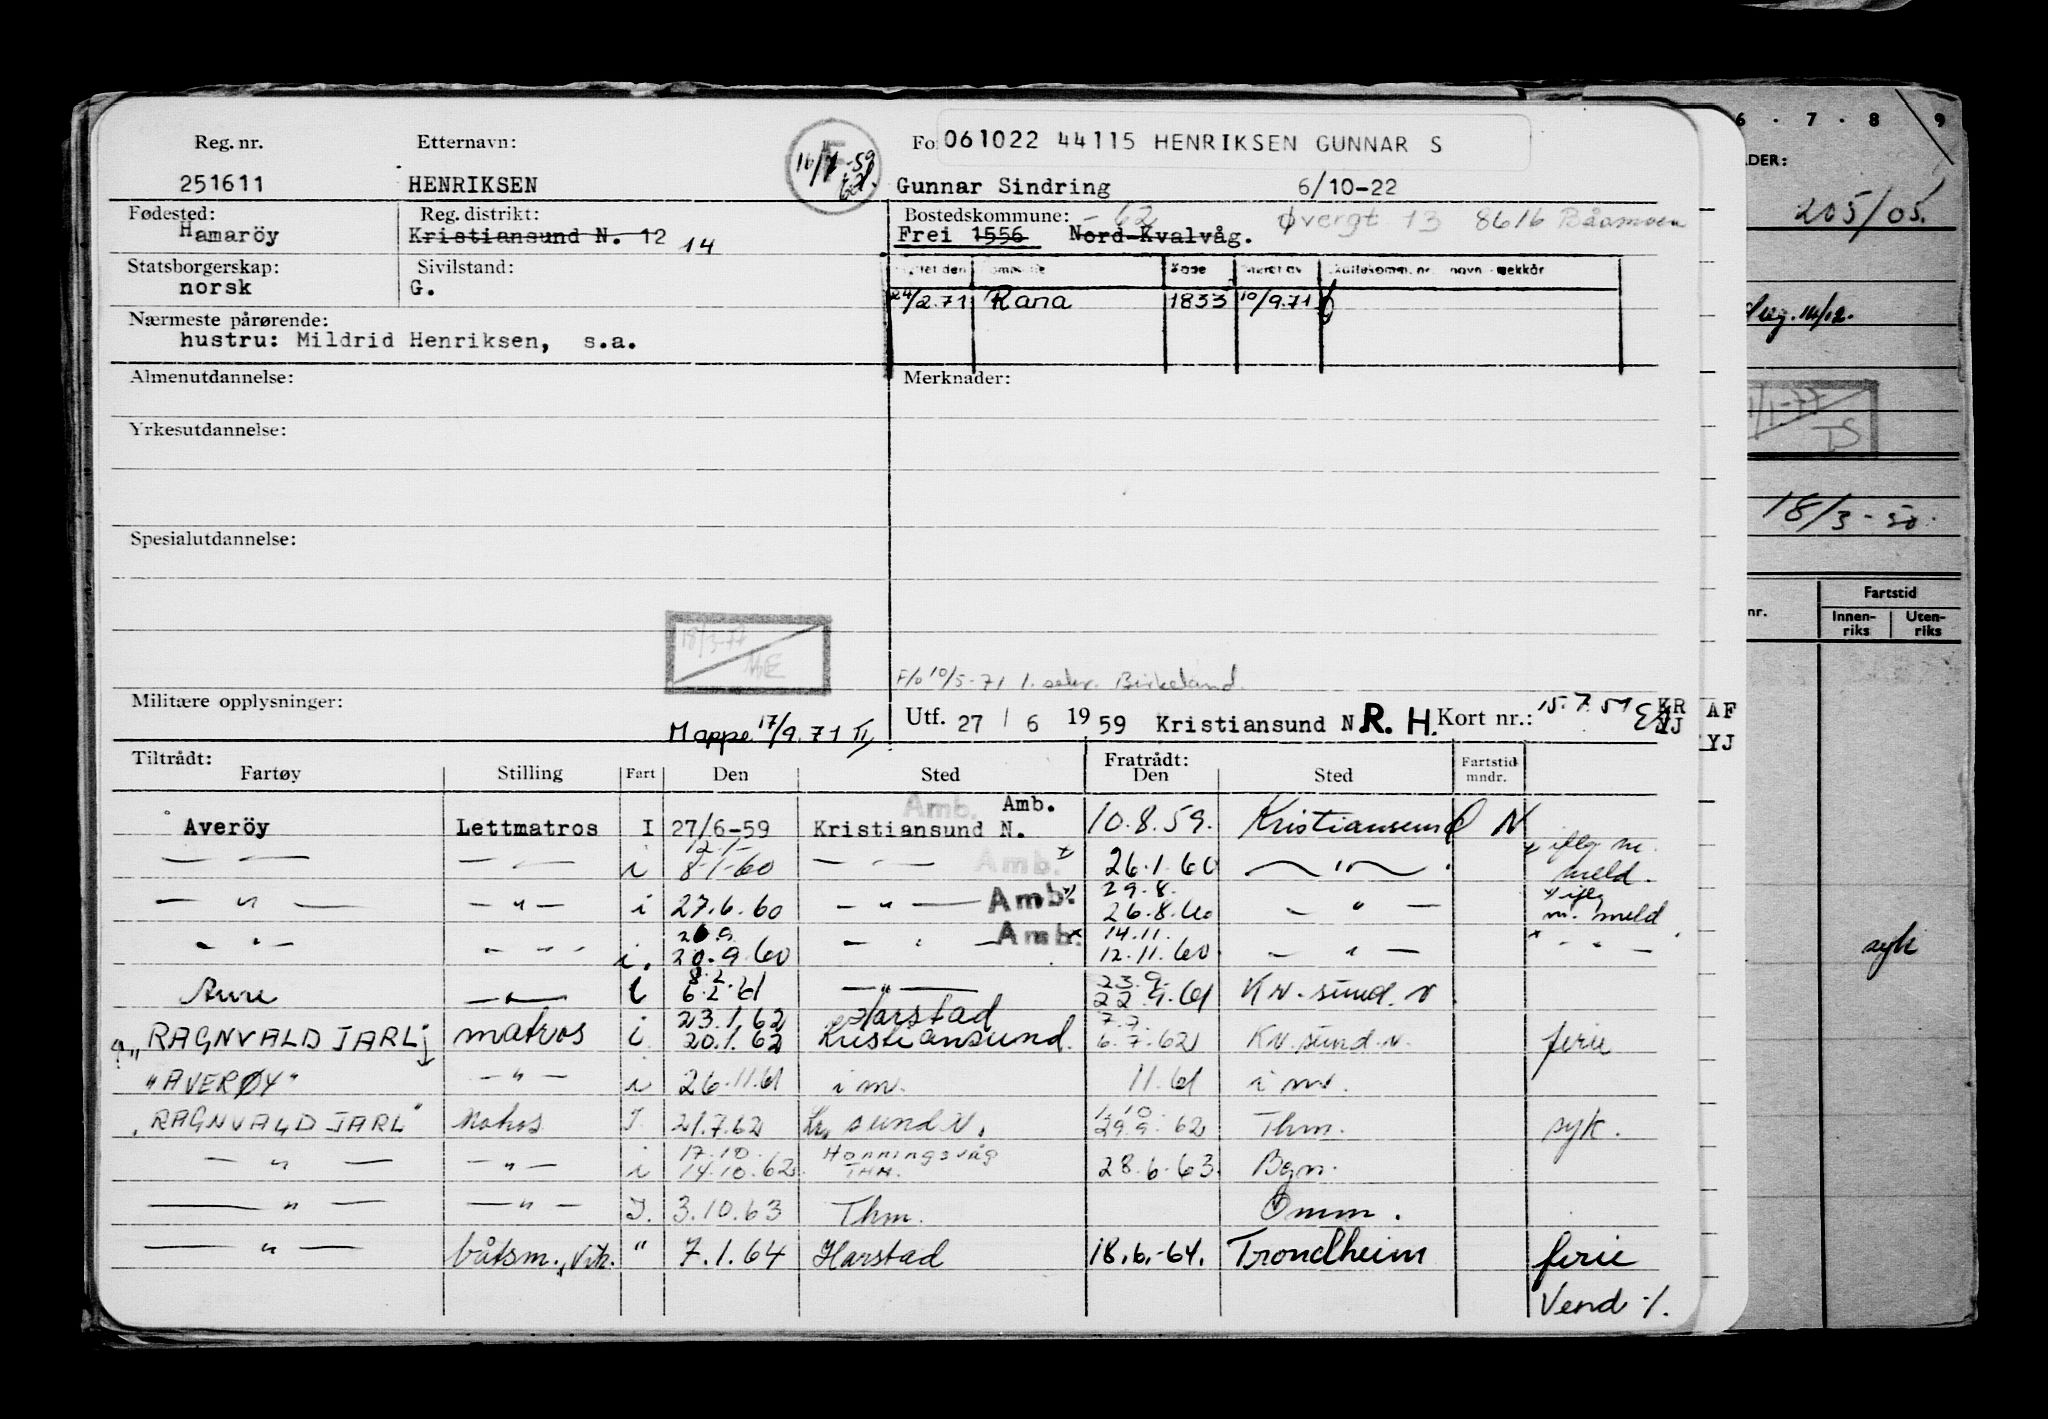 Reg. nr. Etternavn: 16/7-59 Fo 061022 44115 HENRIKSEN GUNNAR S
251611 HENRIKSEN Gunnar Sindring 6/10-22
Fødested: Reg. distrikt: Bostedskommune: -62 Øvergt 13 8616 Båsmoen
Hamaröy Kristiansund N. 12 14 Frei 1556 Nord-Kvalvåg.
Statsborgerskap: Sivilstand:
norsk G. 24/2.71 Rana 1833 10/9.71
Nærmeste pårørende:
hustru: Mildrid Henriksen, s.a.
Almenutdannelse: Merknader:
Yrkesutdannelse:
Spesialutdannelse:
18/3-77 ME
F/o 10/5-71 1. sekr. Birkeland
Militære opplysninger: Utf. 27 / 6 1959 Kristiansund N R. H. Kort nr.: 15.7.59 KR AF
Mappe 17/9.71 YJ
Tiltrådt: Fratrådt: Fartstid
Fartøy Stilling Fart Den Sted Den Sted mndr.
Amb. Amb.
Averöy Lettmatros I 27/6-59 Kristiansund N. 10.8.59. Kristiansund N
12.1.
— — — " — i 8-1-60 — " — Amb. x 26.1.60 — " — x iflg m. meld.
29.8.
— " — — " — i 27.6.60 — " — Amb. x) 26.8.60 — " — x) iflg m. meld
20.9 14.11.
— " — — " — i. 20.9.60 — " — Amb. x 12.11.60 — " — x — " —
8.2. 23.9.
Aure — " — i 6.2.61 — " — 22.9.61 Kr. sund. N
23.1.62 Harstad 7.7.
"RAGNVALD JARL" matros i 20.1.62 Kristiansund. 6.7.62 Kr. sund. N. ferie
"AVERØY" — " — i 26.11.61 i m. 11.61 i m.
1.10
"RAGNVALD JARL" Matros I 21.7.62 Kr. sund N. 29.9.62 Thm. syk.
17.10. Honningsvåg
— " — — " — i 14.10.62 THM. 28.6.63. Bgn.
— " — — " — I. 3.10.63 Thm. Omm.
— " — båtsm., vik. " 7.1.64 Harstad 18.6.-64. Trondheim ferie
Vend ·/.
6 . 7 . 8 9
DER:
205/05.
14/12.
1/1-77
TS
18/3-50.
nr. Fartstid
Innen- Uten-
riks riks
syk